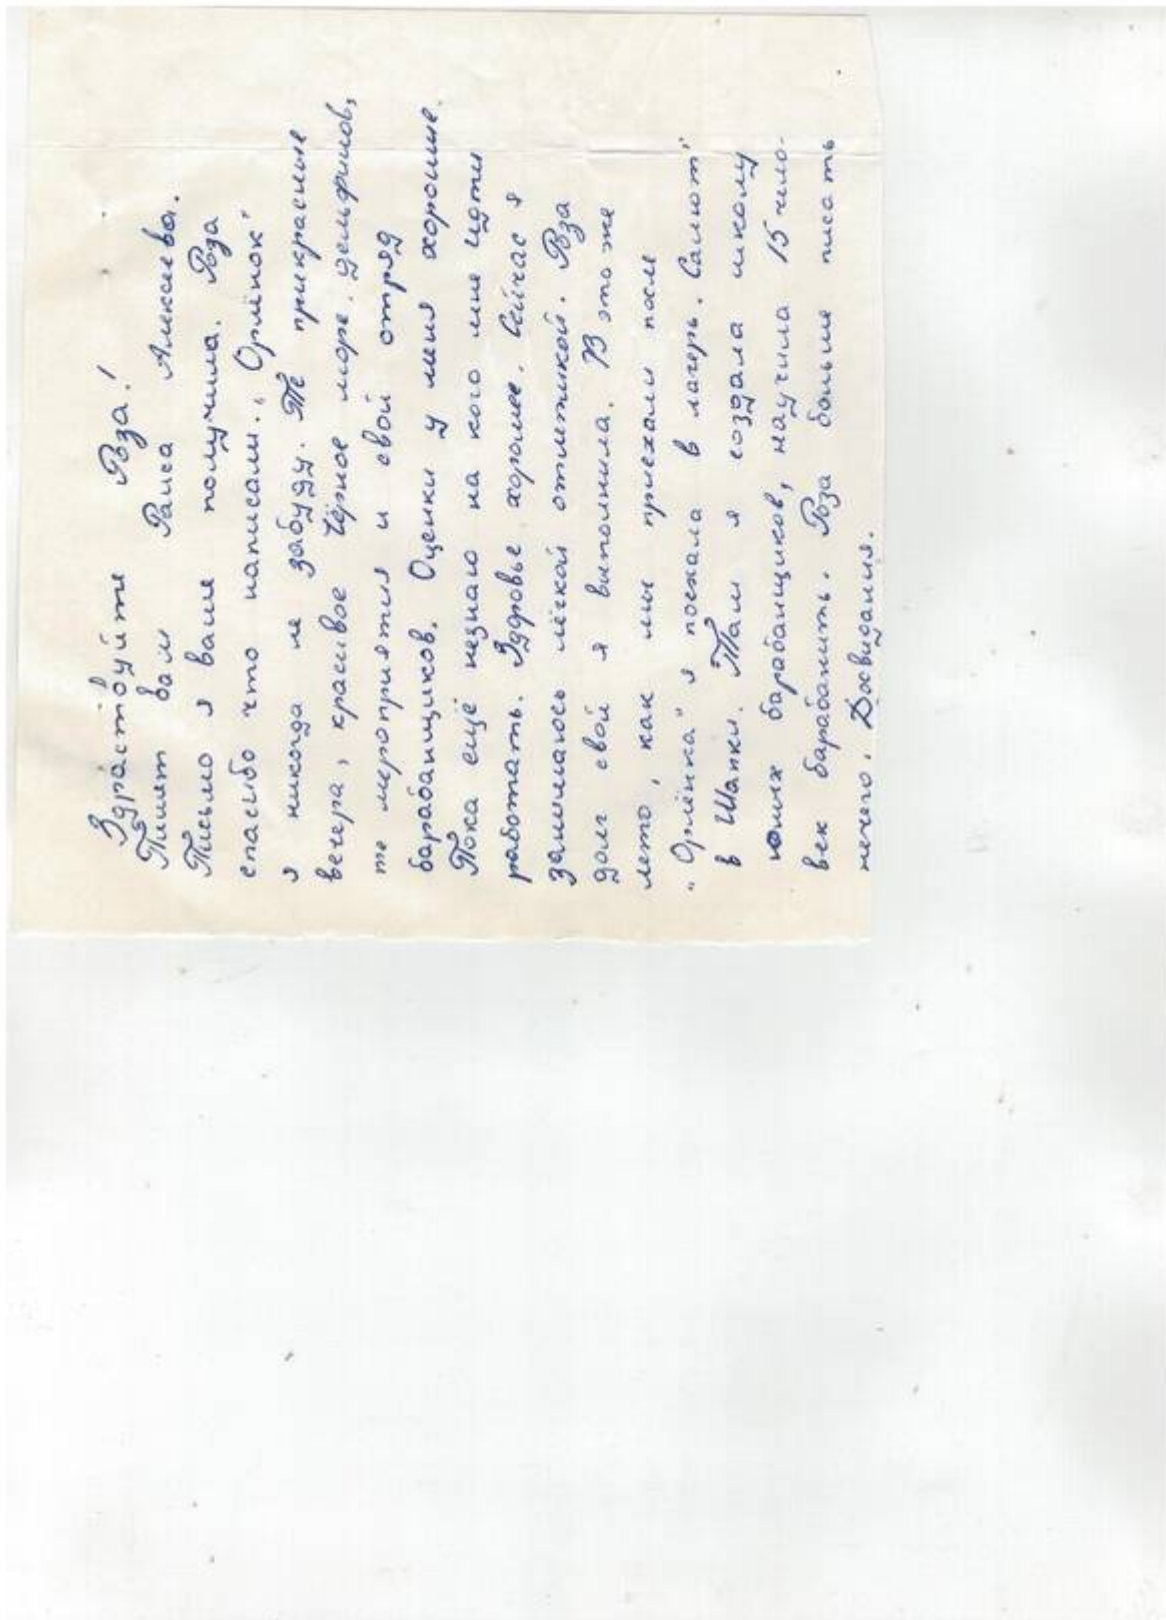 Здраствуйте Роза!
Пишет вам Раиса Алексеева.
Письмо я ваше получила. Роза
спасибо что написали. „Орлёнок"
я никогда не забуду. Те прикрасные
вечера, красивое Чёрное море. дельфинов,
те мероприятия и свой отряд
барабанщиков. Оценки у меня хорошие.
Пока ещё незнаю на кого мне идти
работать. Здоровье хорошее. Сейчас я
занимаюсь лёгкой отлетикой. Роза
долг свой я выполнила. В это же
лето, как мы приехали после
"Орлёнка" я поехала в лагерь. Салют"
в Шапки. Там я создала школу
юных барабанщиков, научила 15 чело-
век барабанить. Роза больше писать
нечего. Досвидания.